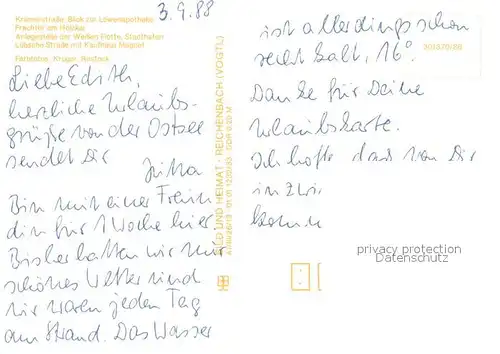 3.9.88
Krämerstraße, Blick zur Löwenapotheke
Frachter am
Anlegestelle der Weißen Flotte, Stadthafen
Lübsche Straße mit Kaufhaus Magnet
Farbfotos: Kruger, Rostock
Liebe Edith,
herzliche Urlaubs-
grüße von der Ostsee
sendet Dir
Jutta
Bin mit einer Freun
din für 1 Woche hier
Bisher hatten wir nur
schönes Wetter und
wir waren jeden Tag
am Strand. Das Wasser
BILD UND HEIMAT · REICHENBACH (VOGTL)
ist allerdings schon
recht kalt, 16°.
Danke für Deine
Urlaubskarte.
Ich hoffe das von Dir
in
privacy protection
Datenschutz